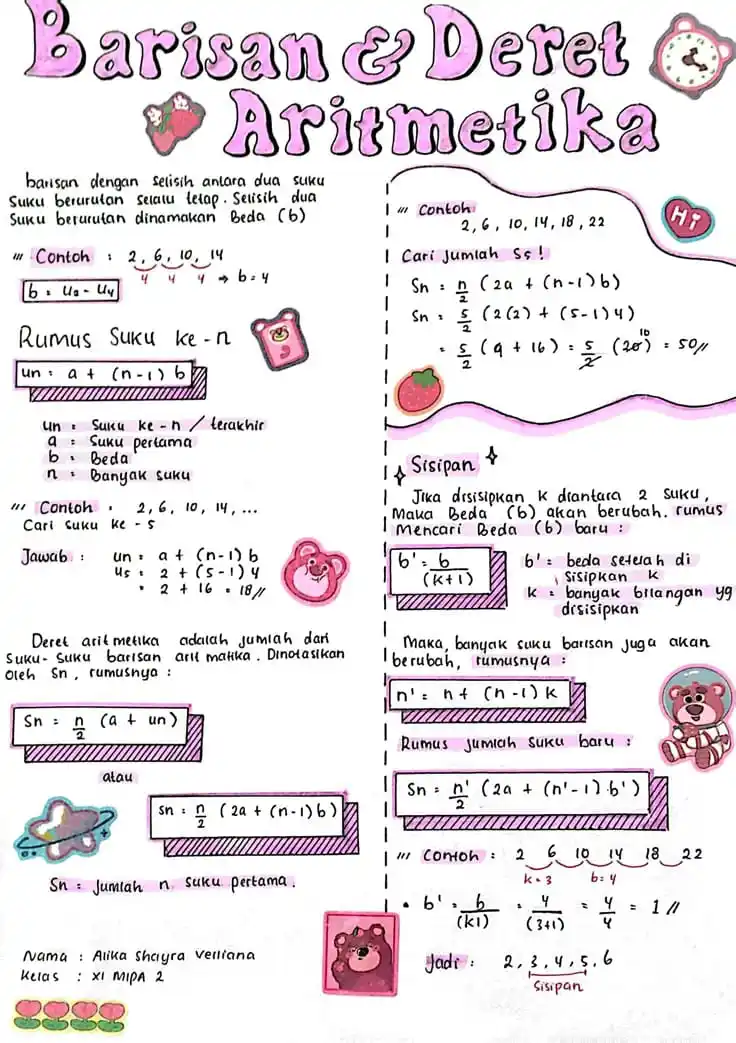 Barisan & Deret
Aritmetika
barisan dengan selisih antara dua suku
suku berurutan selalu tetap. Selisih dua
suku berurutan dinamakan Beda (b)
Contoh : 2, 6, 10, 14
4 4 4 → b = 4
b = U₂ - U₄
Rumus Suku ke-n
un = a + (n-1) b
un = Suku ke-n / terakhir
a = Suku pertama
b = Beda
n = Banyak suku
Contoh : 2, 6, 10, 14, ...
Cari suku ke - 5
Jawab : un = a + (n-1) b
u5 = 2 + (5-1) 4
= 2 + 16 = 18//
Deret aritmetika adalah jumlah dari
suku-suku barisan aritmatika. Dinotasikan
oleh Sn, rumusnya :
Sn = n/2 (a + un)
atau
Sn = n/2 (2a + (n-1) b)
Sn = Jumlah n suku pertama.
Nama : Alika Shayra Velliana
Kelas : XI MIPA 2
Contoh:
2, 6, 10, 14, 18, 22
Cari jumlah S5!
Sn = n/2 (2a + (n-1) b)
Sn = 5/2 (2(2) + (5-1) 4)
= 5/2 (4 + 16) = 5/2 (20) 10 = 50//
Hi
Sisipan
Jika disisipkan k diantara 2 suku,
Maka Beda (b) akan berubah. rumus
Mencari Beda (b) baru :
b' = b/(k+1)
b' = beda setelah di
sisipkan k
k = banyak bilangan yg
disisipkan
Maka, banyak suku barisan juga akan
berubah, rumusnya :
n' = n + (n-1) k
Rumus jumlah suku baru :
Sn = n'/2 (2a + (n'-1) . b')
Contoh : 2 6 10 14 18 22
k = 3 b = 4
• b' = b/(k1) = 4/(3+1) = 4/4 = 1//
Jadi : 2, 3, 4, 5, 6
Sisipan